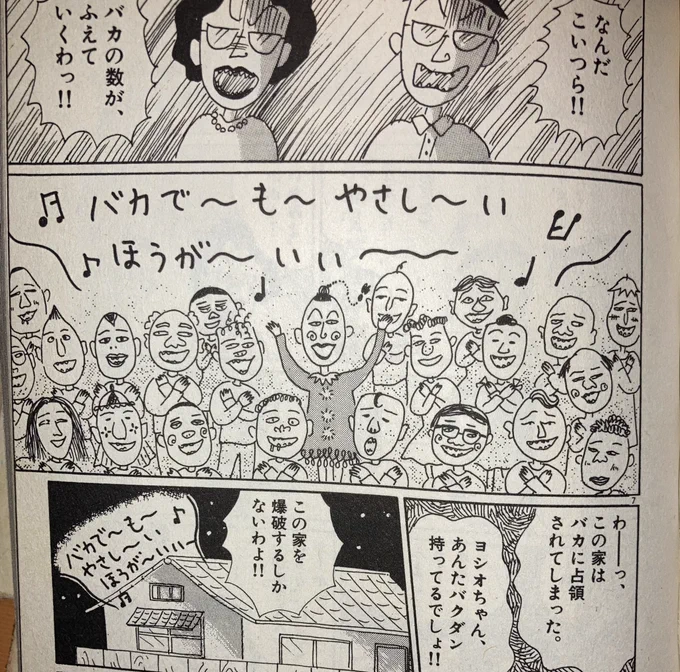 なんだ
こいつら!!
バカの数が、
ふえて
いくわっ!!
バカで〜も〜やさし〜い
ほうが〜いい〜
7
わーっ、
この家は
バカに占領
されてしまった。
ヨシオちゃん、
あんたバクダン
持ってるでしょ!!
この家を
爆破するしか
ないわよ!!
バカで〜も〜
やさし〜い
ほうが〜いいい